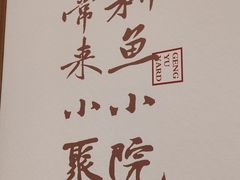 鱼小院
常来小聚
GENG
YU
YARD